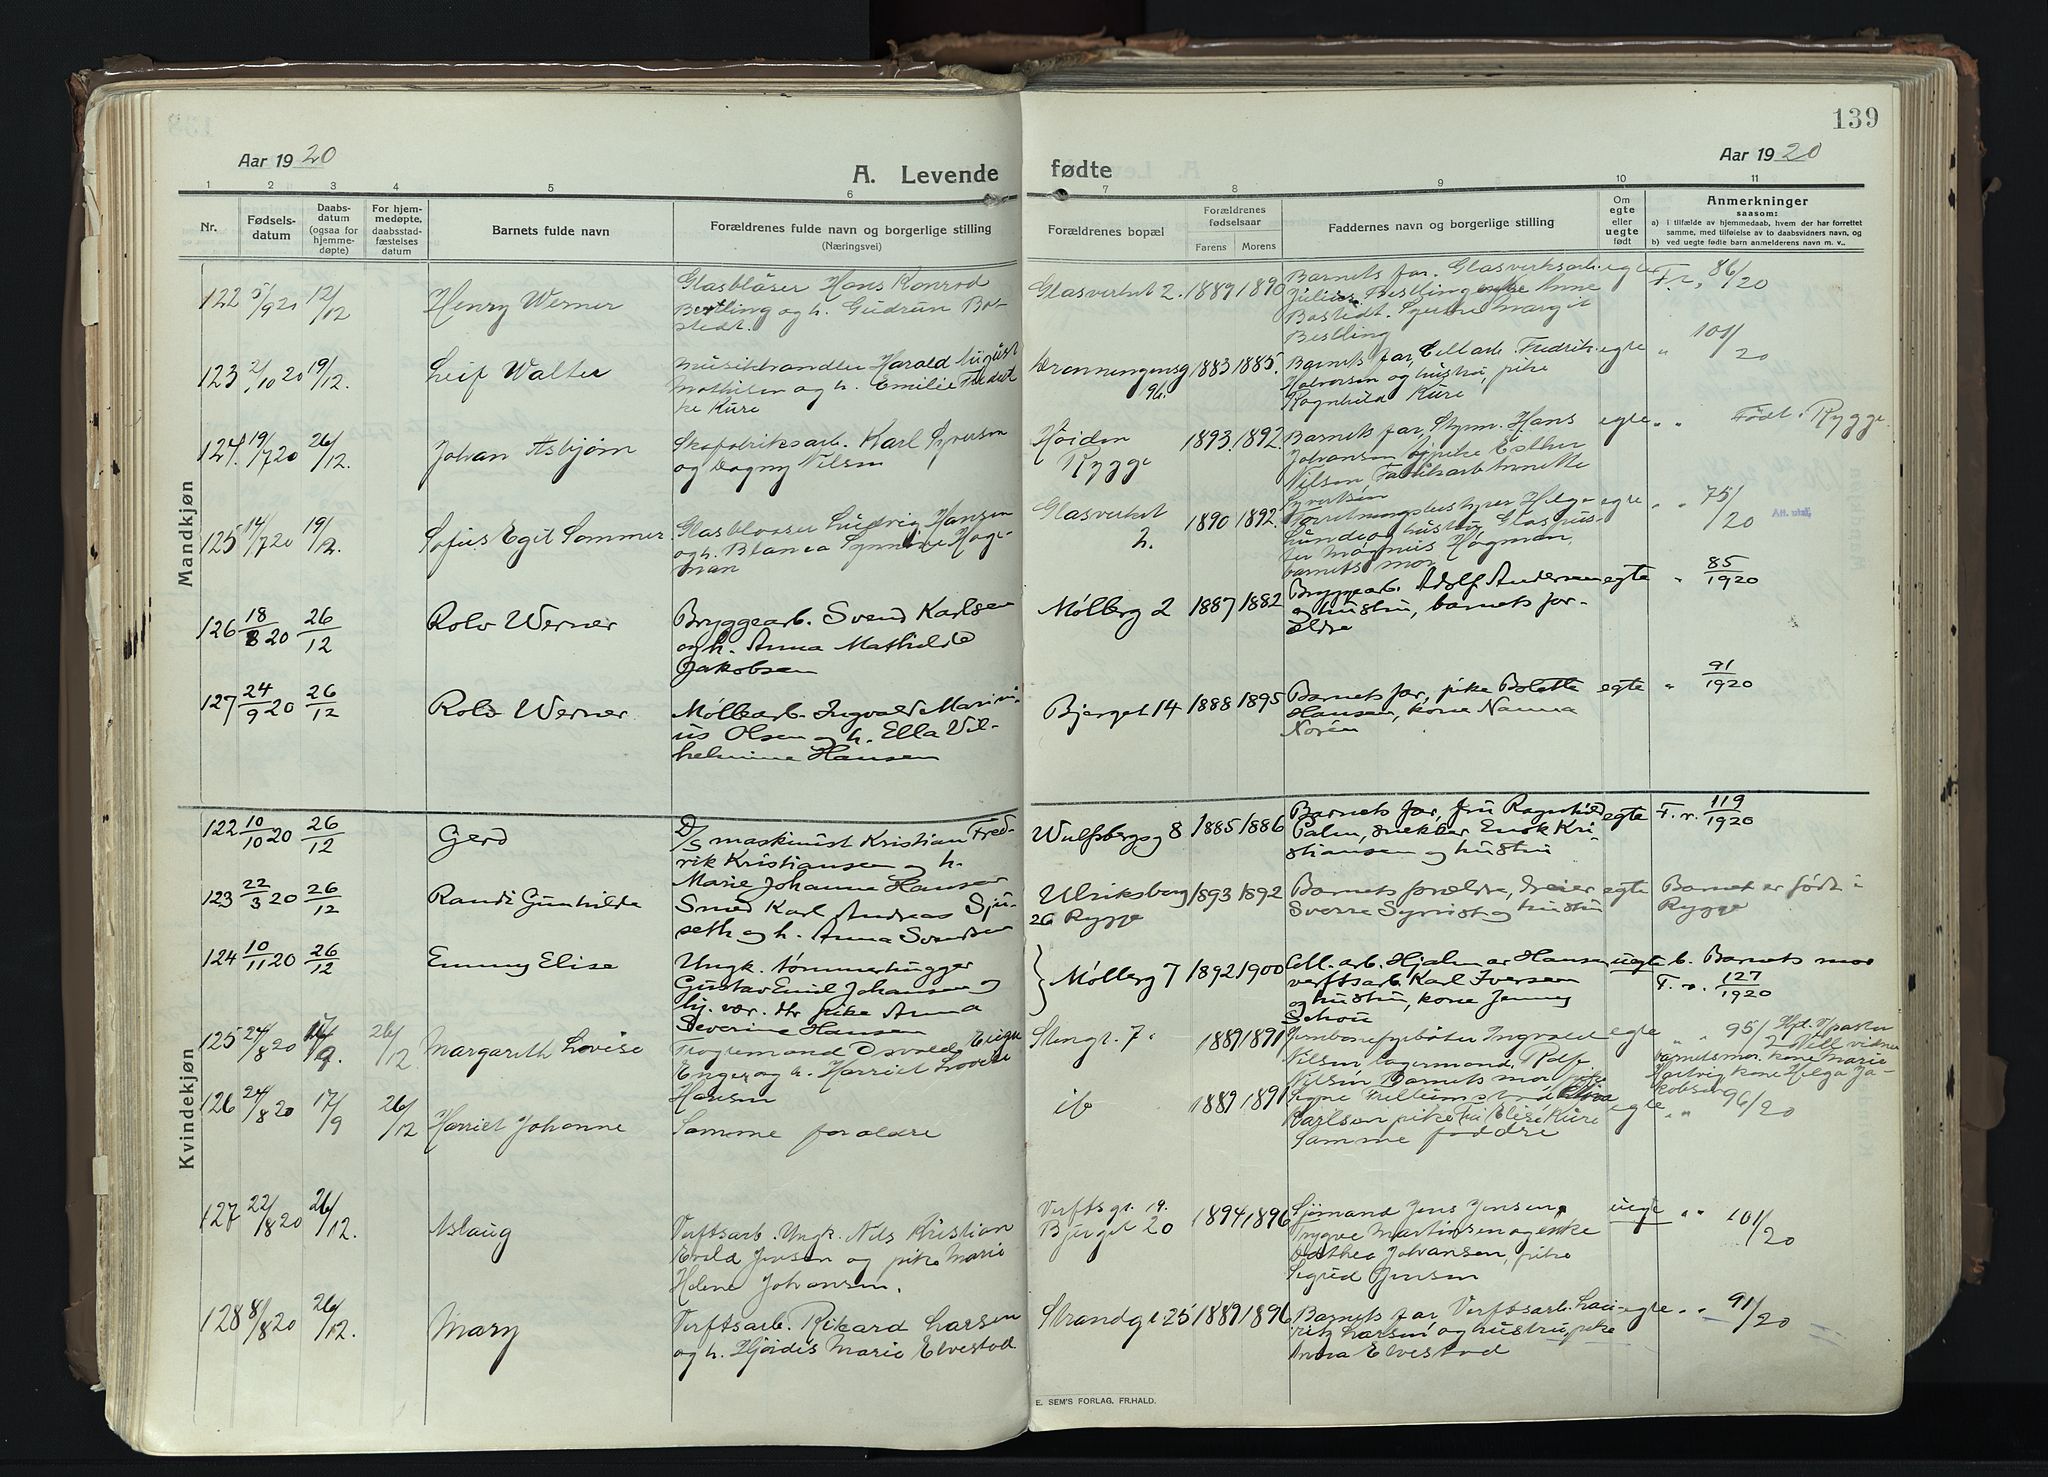 139
Aar 1920
A. Levende
fødte
Aar 1920
1 2 3 4 5 6 7 8 9 10 11
Nr.
Fødsels-
datum
Daabs-
datum
(ogsaa for
hjemme-
døpte)
For hjem-
medøpte,
daabsstad-
fæstelses
datum
Barnets fulde navn
Forældrenes fulde navn og borgerlige stilling
(Næringsvei)
Forældrenes bopæl
Forældrenes
fødselsaar
Farens Morens
Faddernes navn og borgerlige stilling
Om
egte
eller
uegte
født
Anmerkninger
saasom:
a) i tilfælde av hjemmedaab, hvem der har forrettet
samme, med tilføielse av to daabsvidners navn, og
b) ved uegte fødte barn anmelderens navn m. v..
Mandkjøn
122 5/9 20 12/12 Henry Werner
Glasblåser Hans Konrad
Bestling og h. Gudrun Bo-
stedt.
Glasverket 2. 1889 1890
Barnets far. Glasverksarb.
Julius Bestling enke Anne
Bostedt. Margit
Bestling
egte F.r. 86/20
123 2/10 20 19/12. Leif Walter
Musikhandler Harald August
Mathisen og h. Emilie Fredrik-
ke Kure
Dronningensg 96. 1883 1885.
Barnets far, Cell.arb. Fredrik
Halvorsen og hustru, pike
Ragnhild Kure
egte " 101/20
124. 19/7 20 26/12. Johan Asbjørn
Skofabriksarb. Karl Syversen
og Dagny Nilsen
Høiden
Rygge
1893. 1892.
Barnets far, Hans
Johansen pike Esther
Nilsen Fabrikarb Annette
Syvertsen
egte " " Født i Rygge
125 14/7 20 19/12. Sofus Egil Sommer
Glasblaaser Ludvig Hansen
og h. Blanca Synnøve Høg-
man
Glasverket
2.
1890 1892.
Forretningsbestyrer Helge
Lunde og hustru, Glaspus-
ter Magnus Høgman,
barnets mor
egte " " 75/20
Att. utst.
126 18/8 20 26/12 Rolv Werner
Bryggearb. Svend Karlsen
og h. Anna Mathilde
Jakobsen
Mølleberg 2 1887 1882
Bryggearb. Adolf Andersen
og hustru, barnets for-
ældre
egte " 85/1920
127 24/9 20 26/12 Rolv Werner
Møllearb. Ingvald Marin-
ius Olsen og h. Ella Vil-
helmine Hansen
Bjerget 14 1888 1895
Barnets far, pike Bolette
Hansen, kone Nanna
Norén
egte " 91/1920
Kvindekjøn
122 10/10 20 26/12 Gerd
D/S maskinist Kristian Fred-
rik Kristiansen og h.
Marie Johanne Hansen
Wulfsbergsg 8 1885 1886
Barnets far, fru Ragnhild
Palm, snekker Enok Kri-
stiansen og hustru
egte F. r. 119/1920
123 22/3 20 26/12 Randi Gunhilde
Smed Karl Andreas Sju-
seth og h. Anna Svendsen
Ulriksborg
26 Rygge
1893 1892
Barnets forældre, dreier
Sverre Syrrist og hustru
egte Barnet er født i
Rygge
124 10/11 20 26/12 Emmy Elise
Ungk. tømmerhugger
Gustav Emil Johansen og
hj. vær. dtr pike Anna
Severine Hansen
Mølleberg 7 1892 1900
Cell. arb. Hjalmar Hansen
verftsarb. Karl Iversen
og hustru, kone Jenny
Schou
uegte b. Barnets mor
F. r. 127/1920
125 24/8 20 17/9. 26/12 Margareth Lovise
Trogtemand Osvald Eugen
Enger og h. Harriet Lovise
Hansen
Stengt. 7. 1889 1891
Jernbanefyrbøter Ingvald
Nilsen, lagermand Rolf
Nilsen Barnets mor
egte " " 95/ Hpt. v/pastor
2 Vill vidner
barnets mor, kone Marie
Hartvig kone Helga Ja-
kobsen
126 24/8 20 17/9 26/12 Harriet Johanne
Samme foraeldre
ib 1889 1891
Signe
Karlsen pike Elise Kure
Samme faddre
egte " " 96/20
127 22/8 20 26/12. Aslaug
Verftsarb. Ungk. Nils Kristian
Evald Jensen og pike Marie
Helene Johansen.
Verftsgt. 19.
Bjerget 20
1894 1896
Sjømand Jens Jensen,
Yngve Martinsen og enke
Dorthea Johansen, pike
Sigrid Jensen
uegte " " 101/20
128 8/8 20 26/12. Mary
Verftsarb. Rikard Larsen
og h. Hjørdis Marie Elvestad
Strandg. 25 1889 1896
Barnets far, Verftsarb. Lau-
ritz Larsen og hustru, pike
Anna Elvestad
egte " " 91/20
E. SEM'S FORLAG. FR.HALD.